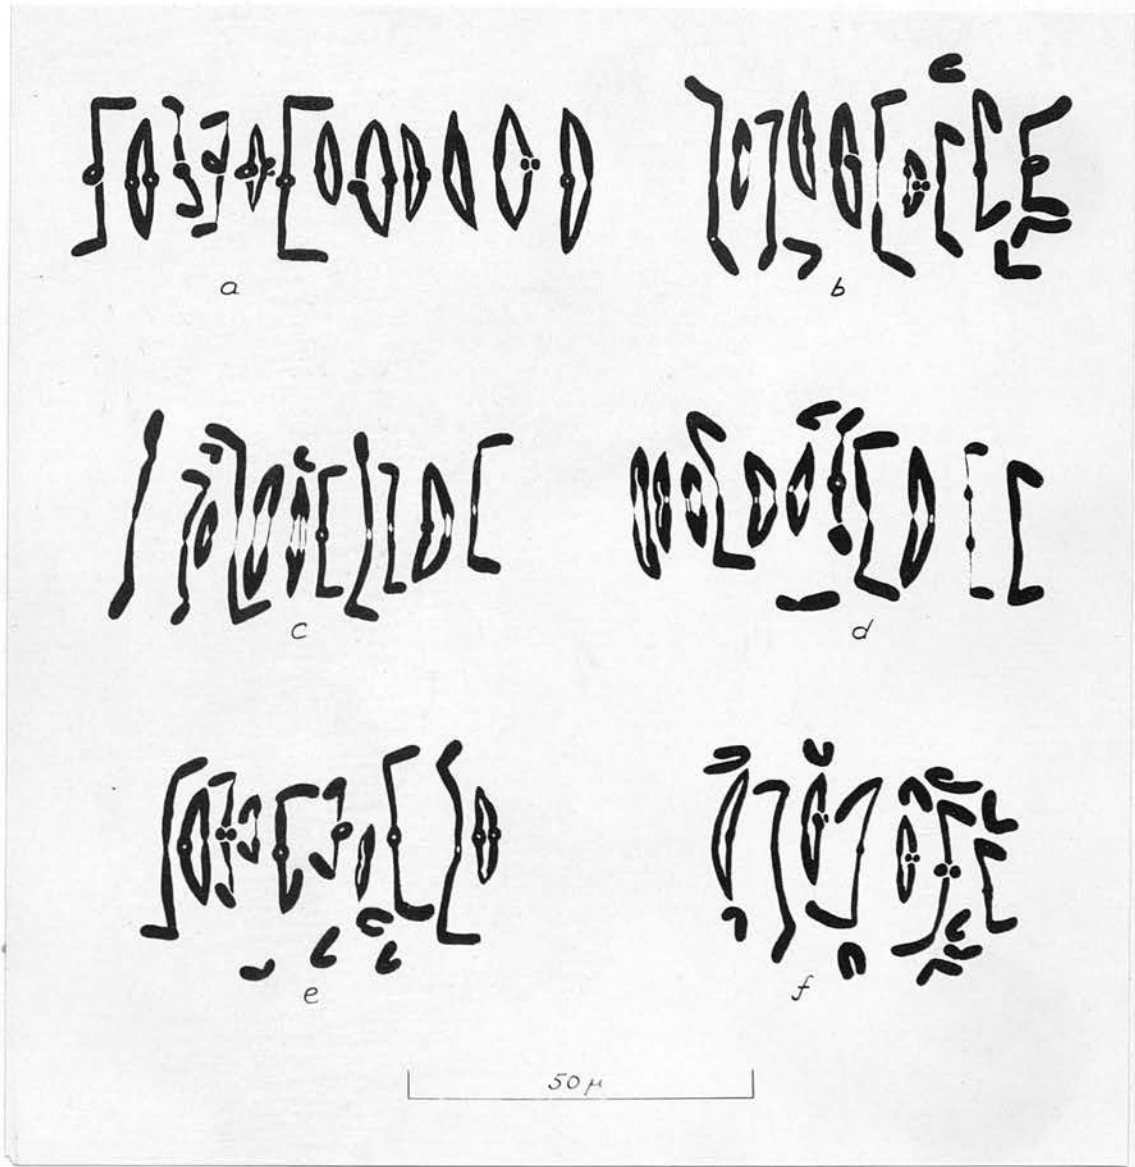 a
b
c
d
e
f
50 μ